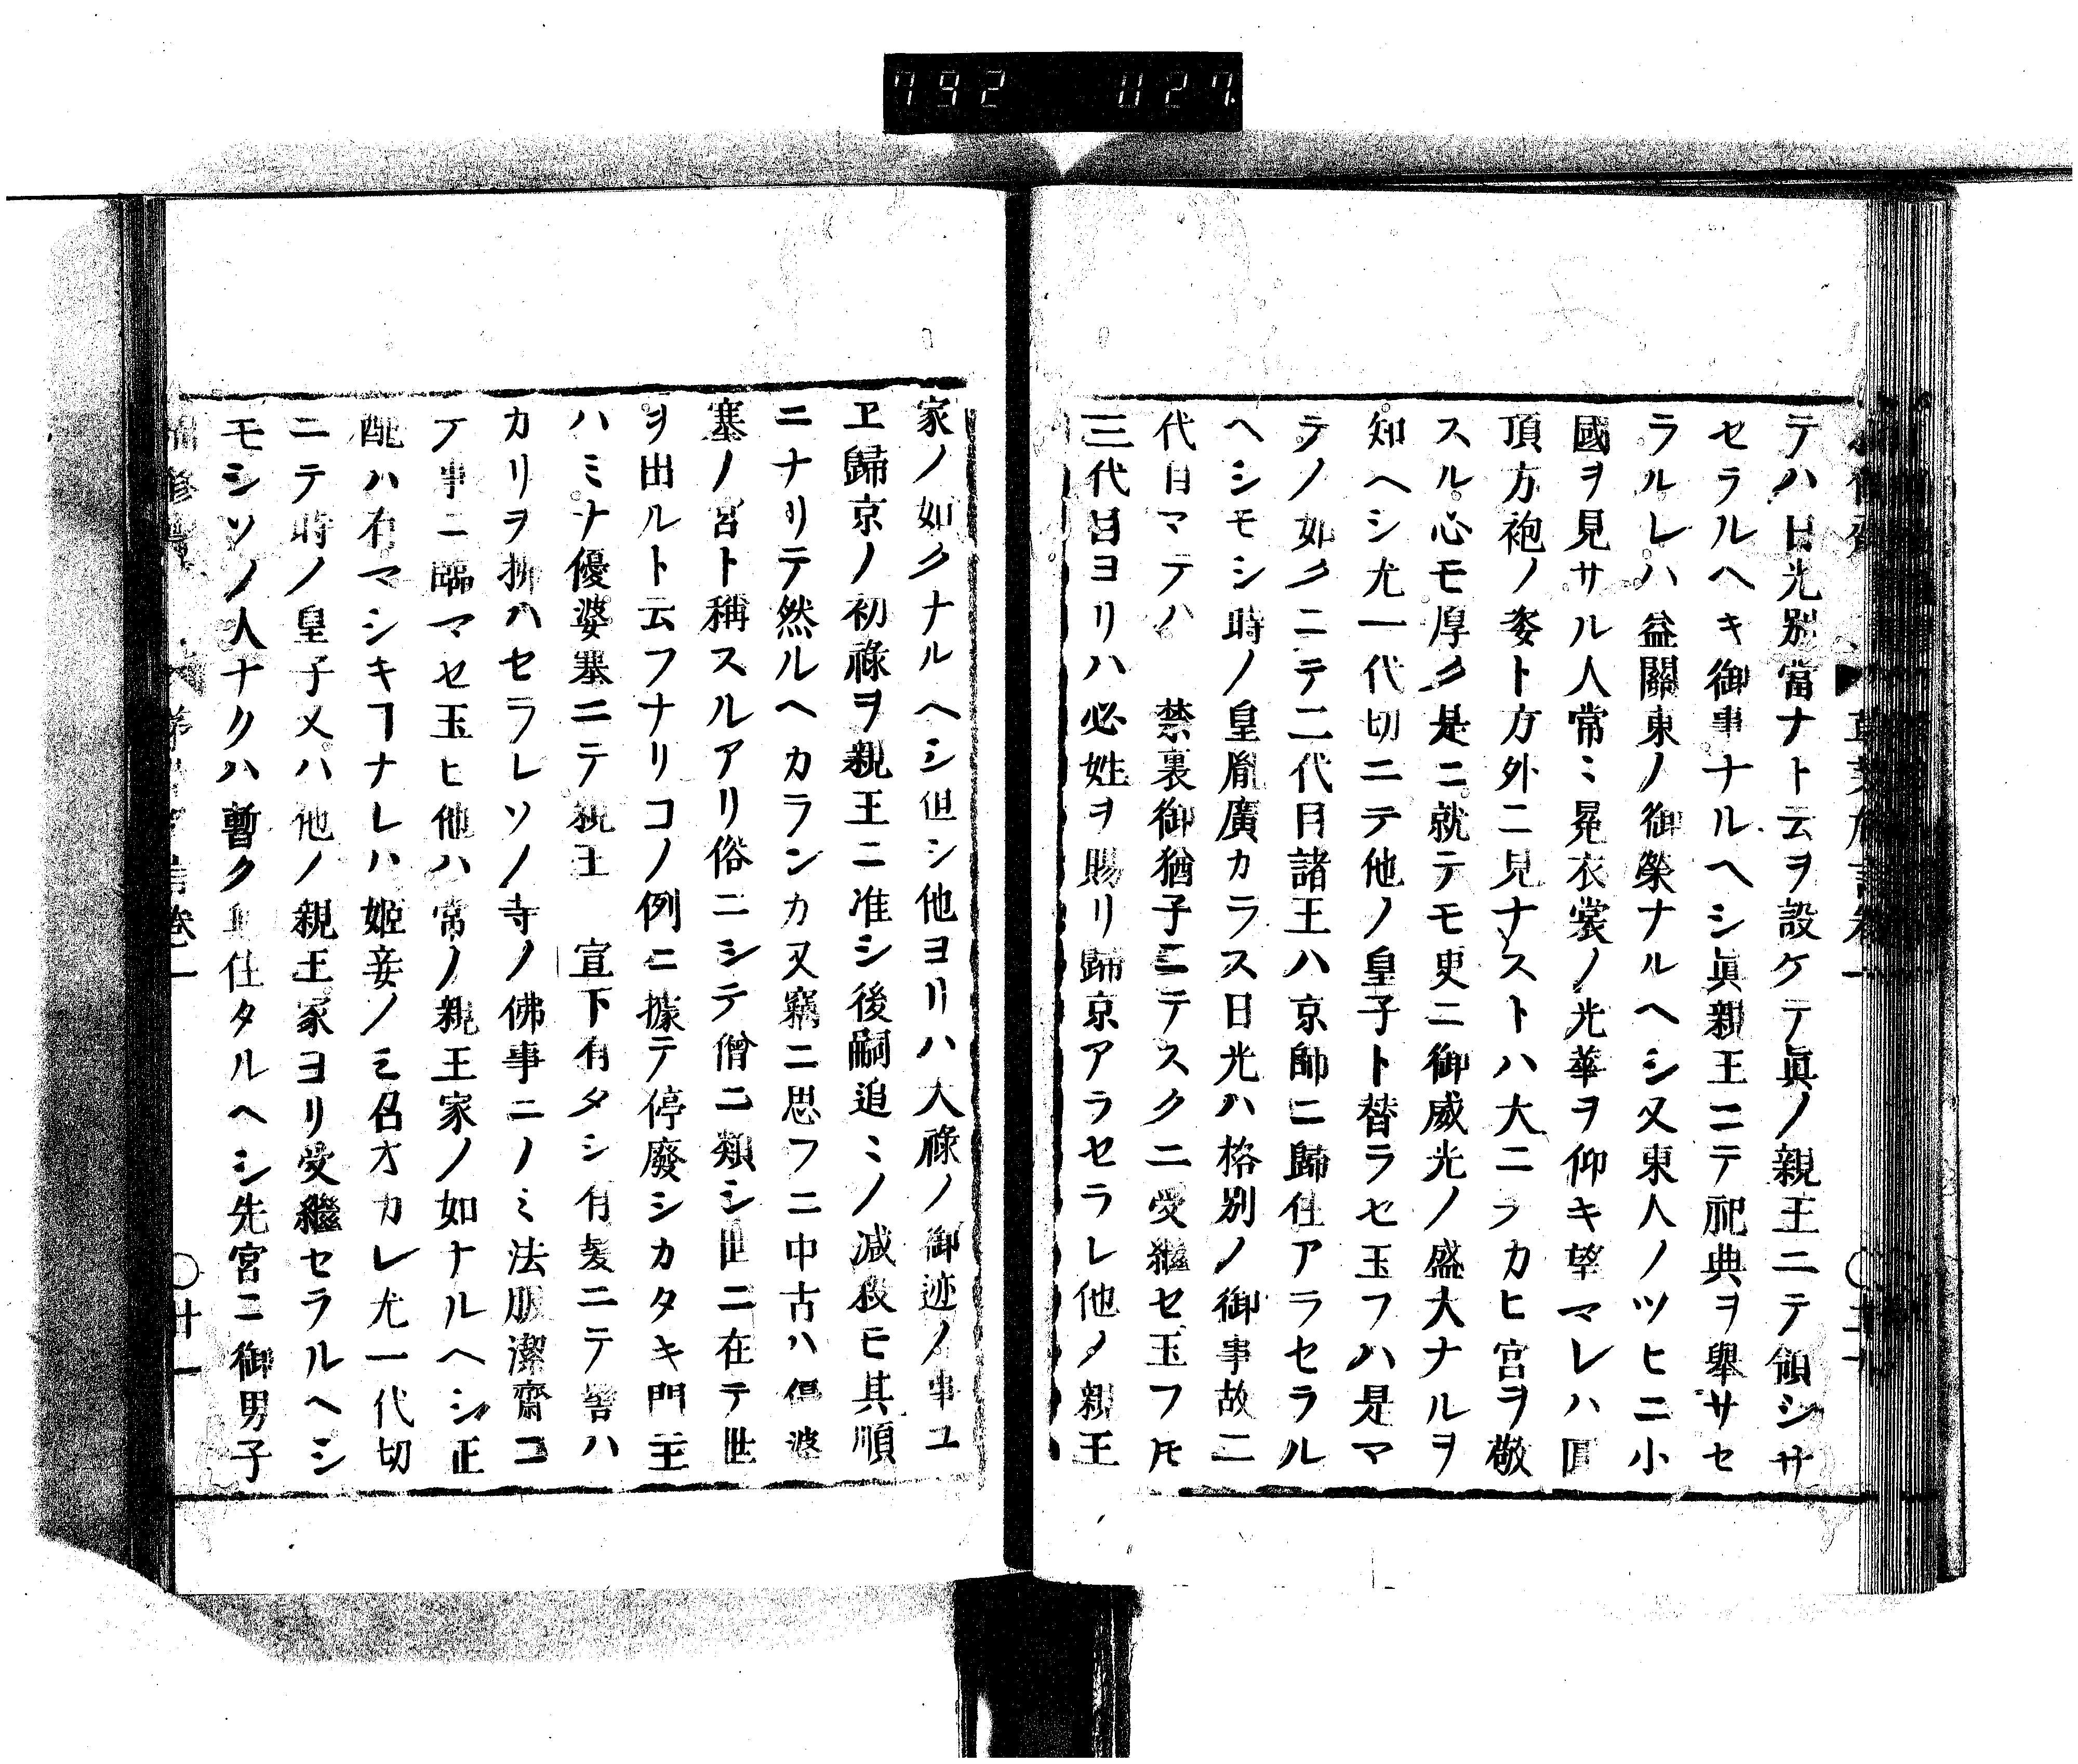 792 027
テハ日光別當ナト云ヲ設ケテ眞ノ親王ニテ領シサ
セラルヘキ御事ナルヘシ眞親王ニテ祀典ヲ舉サセ
ラルレハ益關東ノ御榮ナルヘシ又東人ノツヒニ小
國ヲ見サル人常ミ冕衣裳ノ光華ヲ仰キ望マレハ圓
頂方袍ノ姿ト方外ニ見ナストハ大ニラカヒ宮ヲ敬
スル心モ厚ク是ニ就テモ更ニ御威光ノ盛大ナルヲ
知ヘシ尤一代切ニテ他ノ皇子ト替ラセ玉フハ是マ
テノ如クニテ二代目諸王ハ京師ニ歸住アラセラル
ヘシモシ時ノ皇胤廣カラス日光ハ格別ノ御事故二
代目マテハ 禁裏御猶子ニテスクニ受繼セ玉フ𪜈
三代目ヨリハ必姓ヲ賜リ歸京アラセラレ他ノ親王
家ノ如クナルヘシ但シ他ヨリハ大祿ノ御迹ノ事ユ
ヱ歸京ノ初祿ヲ親王ニ准シ後嗣追ミノ减殺モ其順
ニナリテ然ルヘカランカ又竊ニ思フニ中古ハ優婆
塞ノ宮ト稱スルアリ俗ニシテ僧ニ類シ世ニ在テ世
ヲ出ルト云フナリコノ例ニ據テ停廢シカタキ門主
ハミナ優婆塞ニテ親王 宣下有タシ有髪ニテ髻ハ
カリヲ拂ハセラレソノ寺ノ佛事ニノミ法服潔齋コ
ノ事ニ臨マセ玉ヒ他ハ常ノ親王家ノ如ナルヘシ正
配ハ有マシキヿナレハ姬妾ノミ召オカレ尤一代切
ニテ時ノ皇子又ハ他ノ親王家ヨリ受繼セラルヘシ
モシソノ人ナクハ暫ク無住タルヘシ先宮ニ御男子
卷一
〇廿一